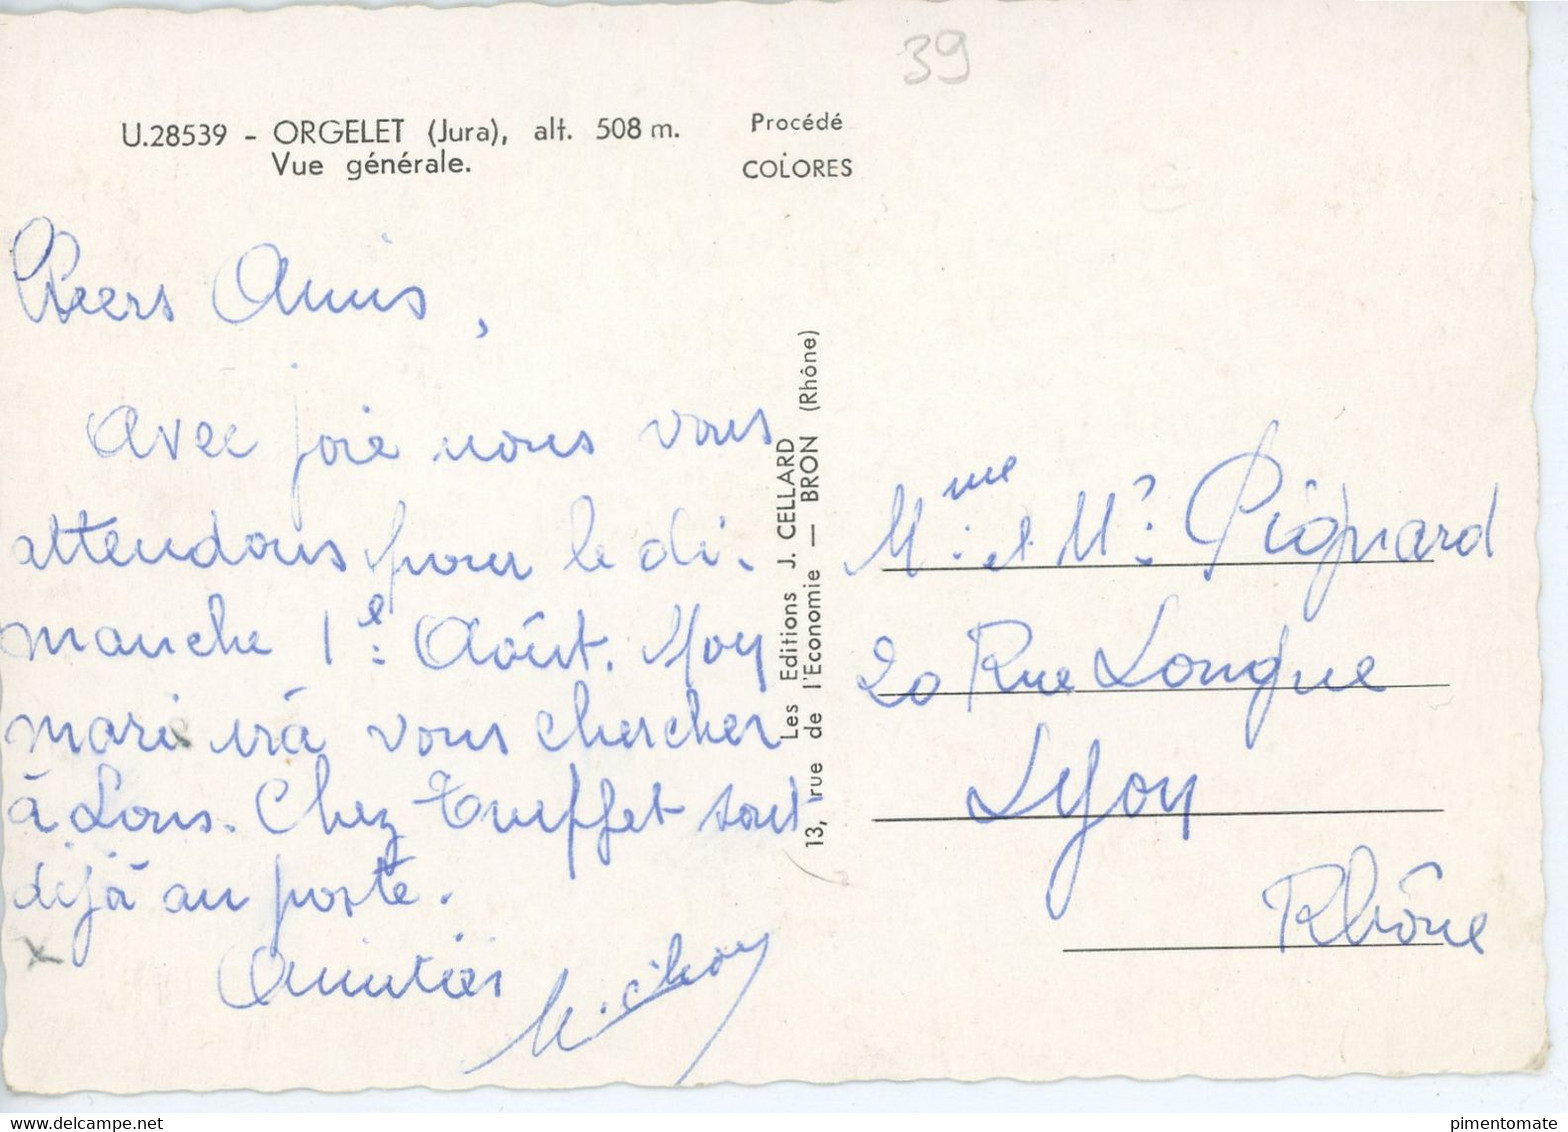 39
U.28539 - ORGELET (Jura), alt. 508 m.
Vue générale.
Procédé
COLORES
Chers Amis,
Avec joie nous vous
attendons pour le di-
manche 1e Août. Moy
mari irà vous chercher
à Lons. Chez Truffet sont
déjà au poste.
Amitiés
Les Editions J. CELLARD
13, rue de l'Economie — BRON (Rhône)
Mme et Mr Pignard
20 Rue Longue
Lyon
Rhône
pimentomate